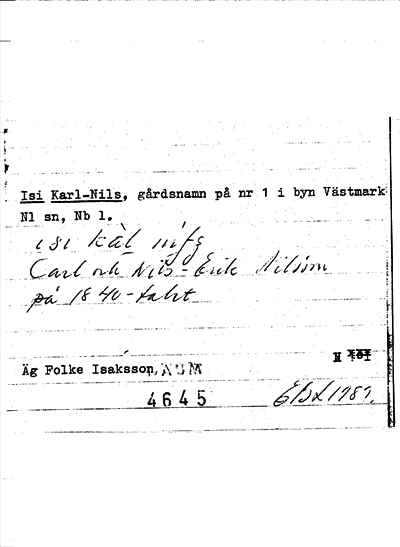 Isi Karl-Nils, gårdsnamn på nr 1 i byn Västmark
Nl sn, Nb 1.
isi kàl
Carl och Nils-Erik Nilsson
på 1840-talet
N
Äg Folke Isaksson,
4645 EBL 1989.